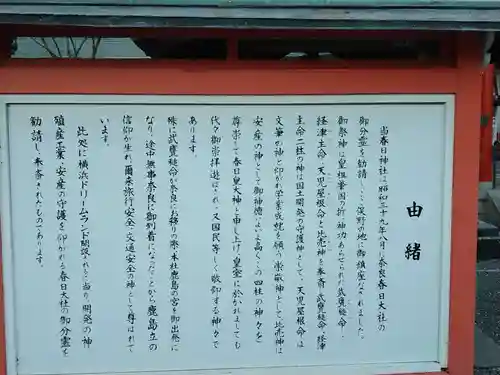 由緒
当春日神社は昭和三十九年八月に奈良春日大社の
御分霊を勧請し、俣野の地に御鎮座なされました。
御祭神は皇祖肇国の折、神功あらせられた武甕槌命、
経津主命、天児屋根命と比売神を奉斎、武甕槌命、経津
主命二柱の神は国土開発の守護神として、天児屋根命は
文筆の神と仰がれ学業成就を願う崇敬神として、比売神は
安産の神として御神徳いよいよ高く、この四柱の神々を
尊崇して春日皇大神と申し上げ、皇室に於かれましても
代々御崇拝遊ばされ、又国民等しく敬仰する神々で
あります。
殊に武甕槌命が奈良にお移りの際、本社鹿島の宮を御出発に
なり、途中無事奈良に御到着になったことから鹿島立の
信仰が生れ、爾来旅行安全、交通安全の神として尊ばれて
います。
此処に横浜ドリームランド開設されるに当り、開発の神
殖産工業、安産の守護を仰がれる春日大社の御分霊を
勧請し、奉斎されたものであります。